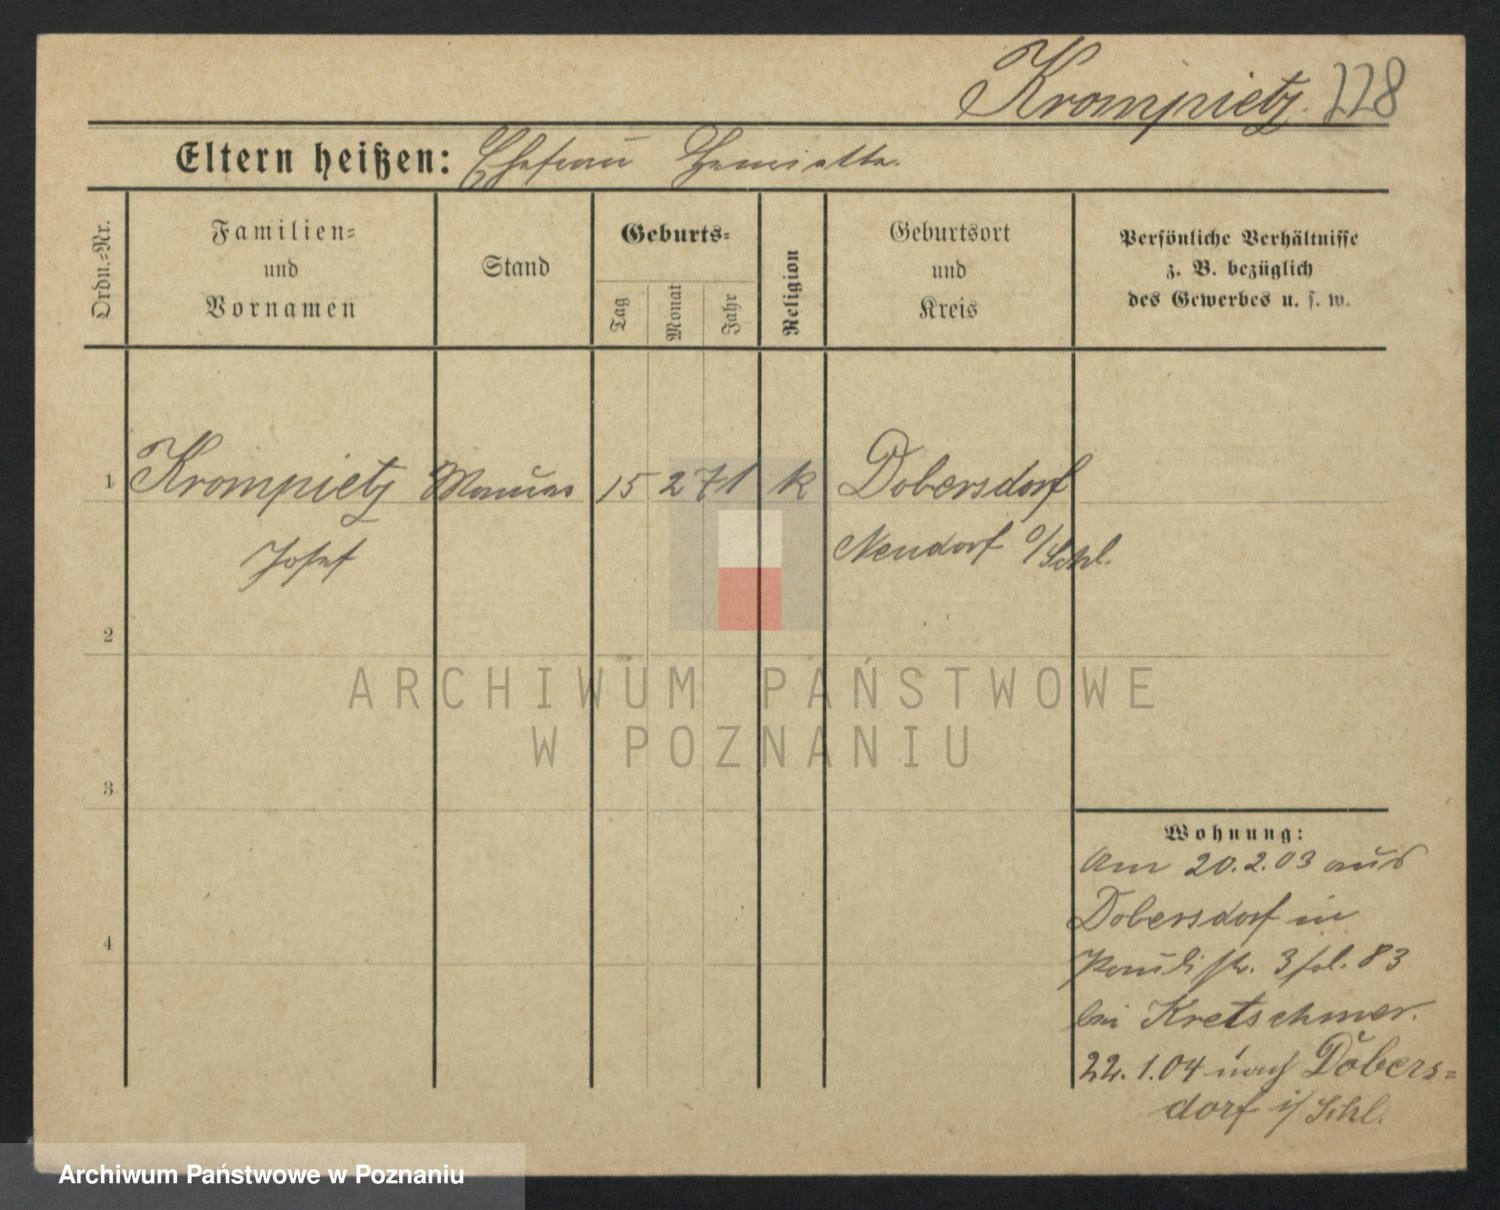 Krompietz. 228
Eltern heißen: Ehefrau Henriette.
Ordn.=Nr.
Familien=
und
Vornamen
Stand
Geburts=
Tag
Monat
Jahr
Religion
Geburtsort
und
Kreis
Persönliche Verhältnisse
z. B. bezüglich
des Gewerbes u. s. w.
1 Krompietz Maurer 15 2 71 k Dobersdorf
Josef Neudorf O/Schl.
2
ARCHIWUM PAŃSTWOWE
W POZNANIU
3
Wohnung:
Am 20.2.03 aus
Dobersdorf in
Paulistr. 3 fol. 83
bei Kretschmer.
4
22.1.04 nach Dobers=
dorf i/Schl.
Archiwum Państwowe w Poznaniu